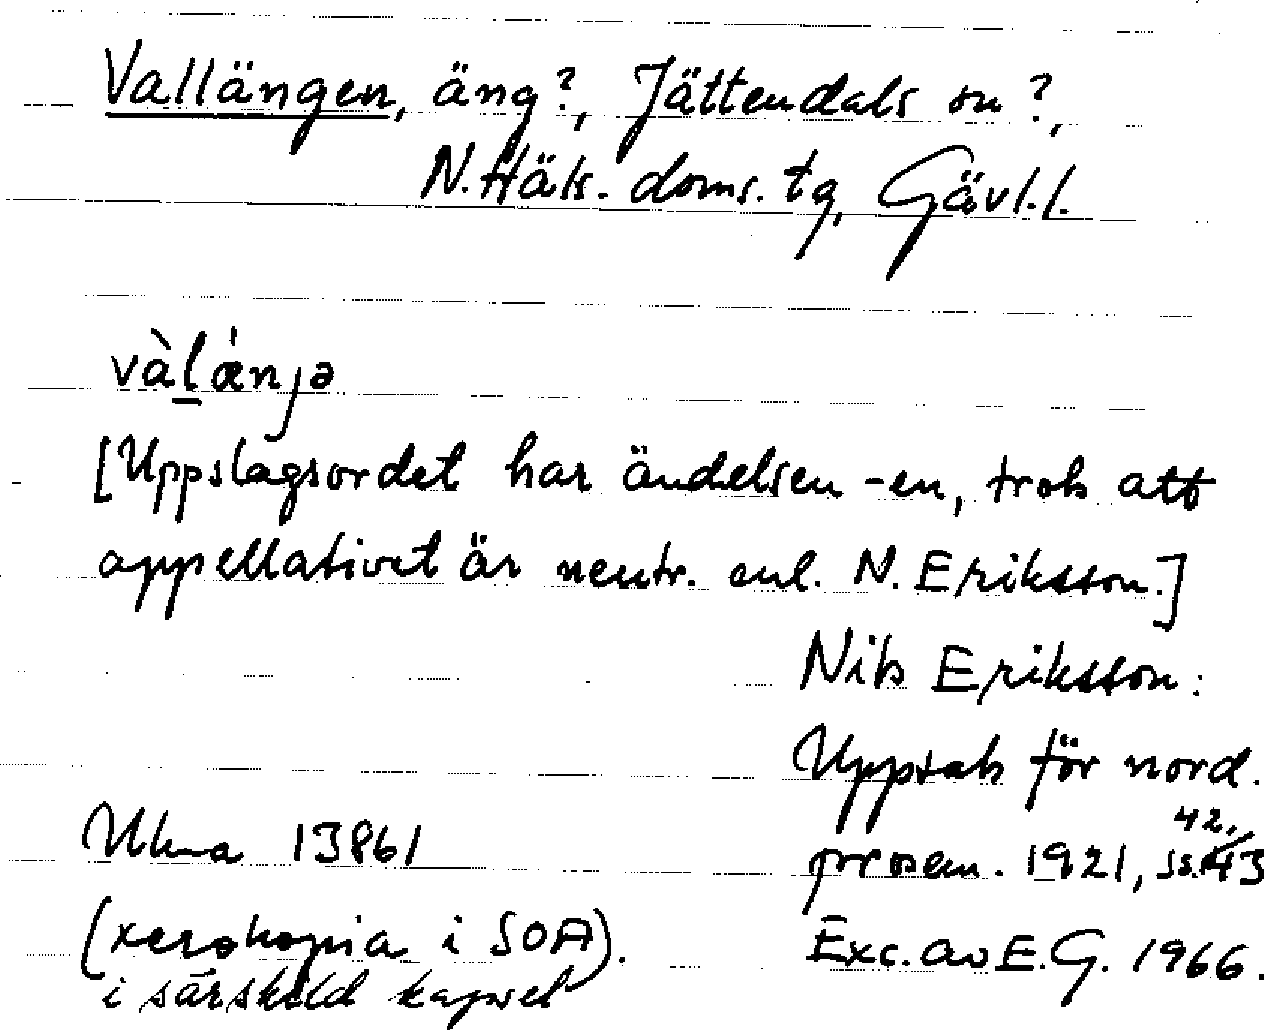 Vallängen, äng?, Jättendals sn?,
N. Häls. doms. tg, Gävl.l.
vàl̲ǽnjə
[Uppslagsordet har ändelsen -en, trots att
appellativet är neutr. enl. N. Eriksson.]
Nils Eriksson:
Uppsats för nord.
prosem. 1921, ss. 42, 43
Exc. av E.G. 1966.
Ulma 13861
(xerokopia i SOA).
i särskild kapsel